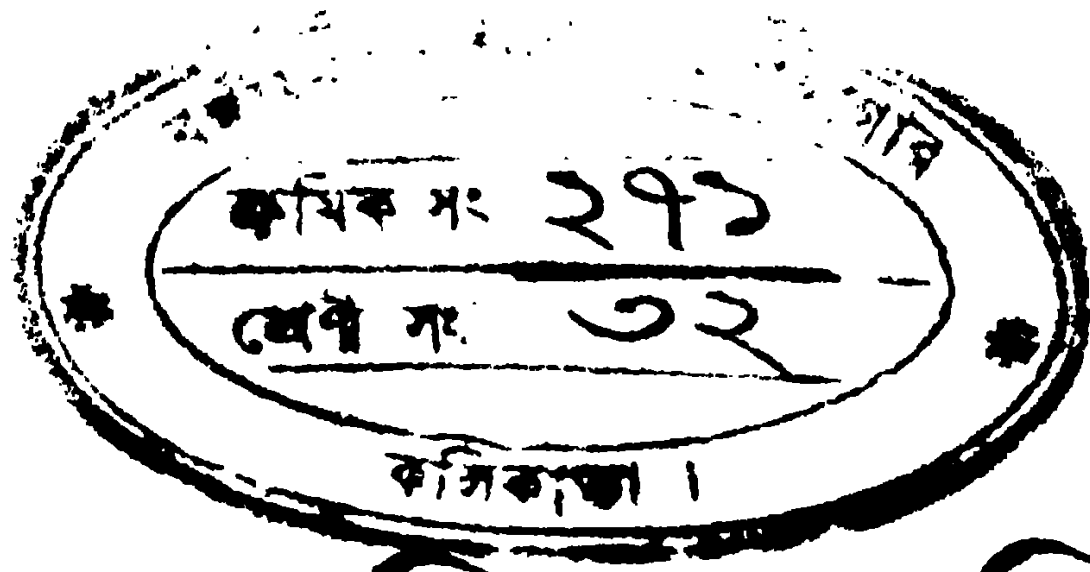 ক্রমিক সং ২৭১
শ্রেণী সং ৩২
কলিকাতা ।